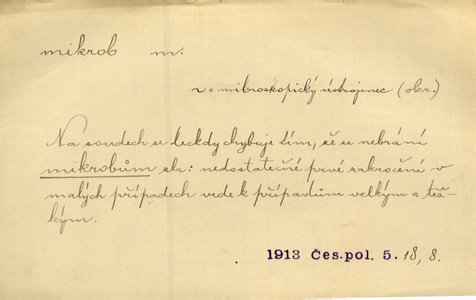 mikrob m.
v = mikroskopický ústrojinec (obr.)
Na soudech se leckdy chybuje tím, že se nebrání
mikrobům zla: nedostatečné prvé zakročení v
malých případech vede k případům velkým a těž-
kým.
1913 Čes. pol. 5. 18, 8.